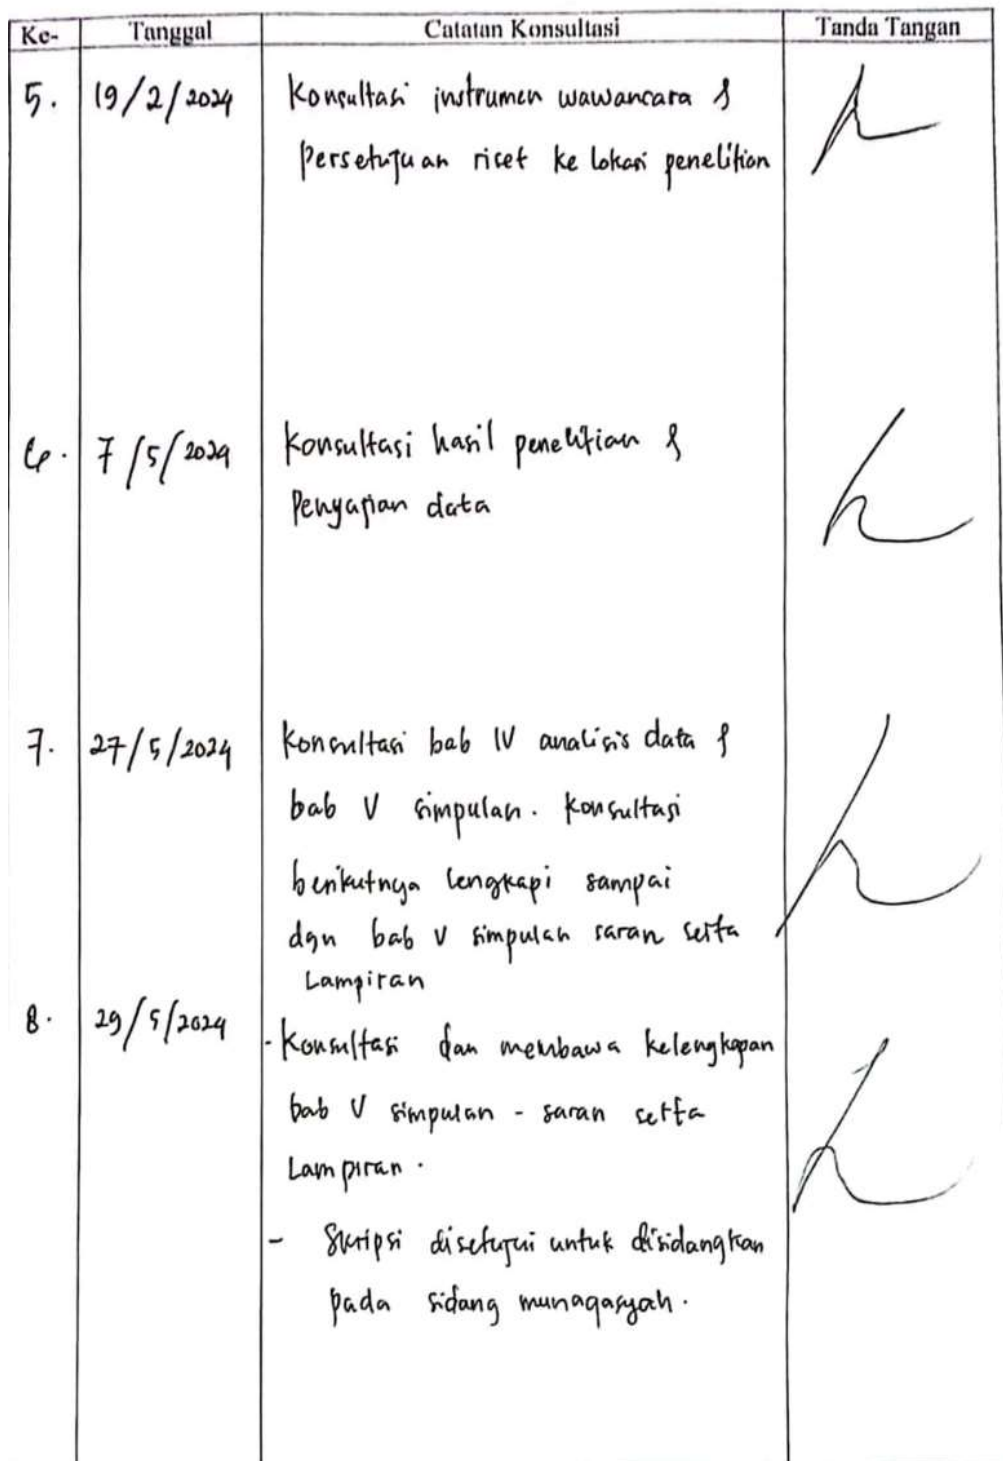 Ke- Tanggal Catatan Konsultasi Tanda Tangan
5. 19/2/2024 Konsultasi instrumen wawancara &
Persetujuan riset ke lokasi penelitian
6. 7/5/2024 Konsultasi hasil penelitian &
Penyajian data
7. 27/5/2024 Konsultasi bab IV analisis data &
bab V simpulan. Konsultasi
berikutnya lengkapi sampai
dgn bab V simpulan saran serta
Lampiran
8. 29/5/2024 - Konsultasi dan membawa kelengkapan
bab V simpulan - saran serta
Lampiran.
- Skripsi disetujui untuk disidangkan
pada sidang munaqasyah.